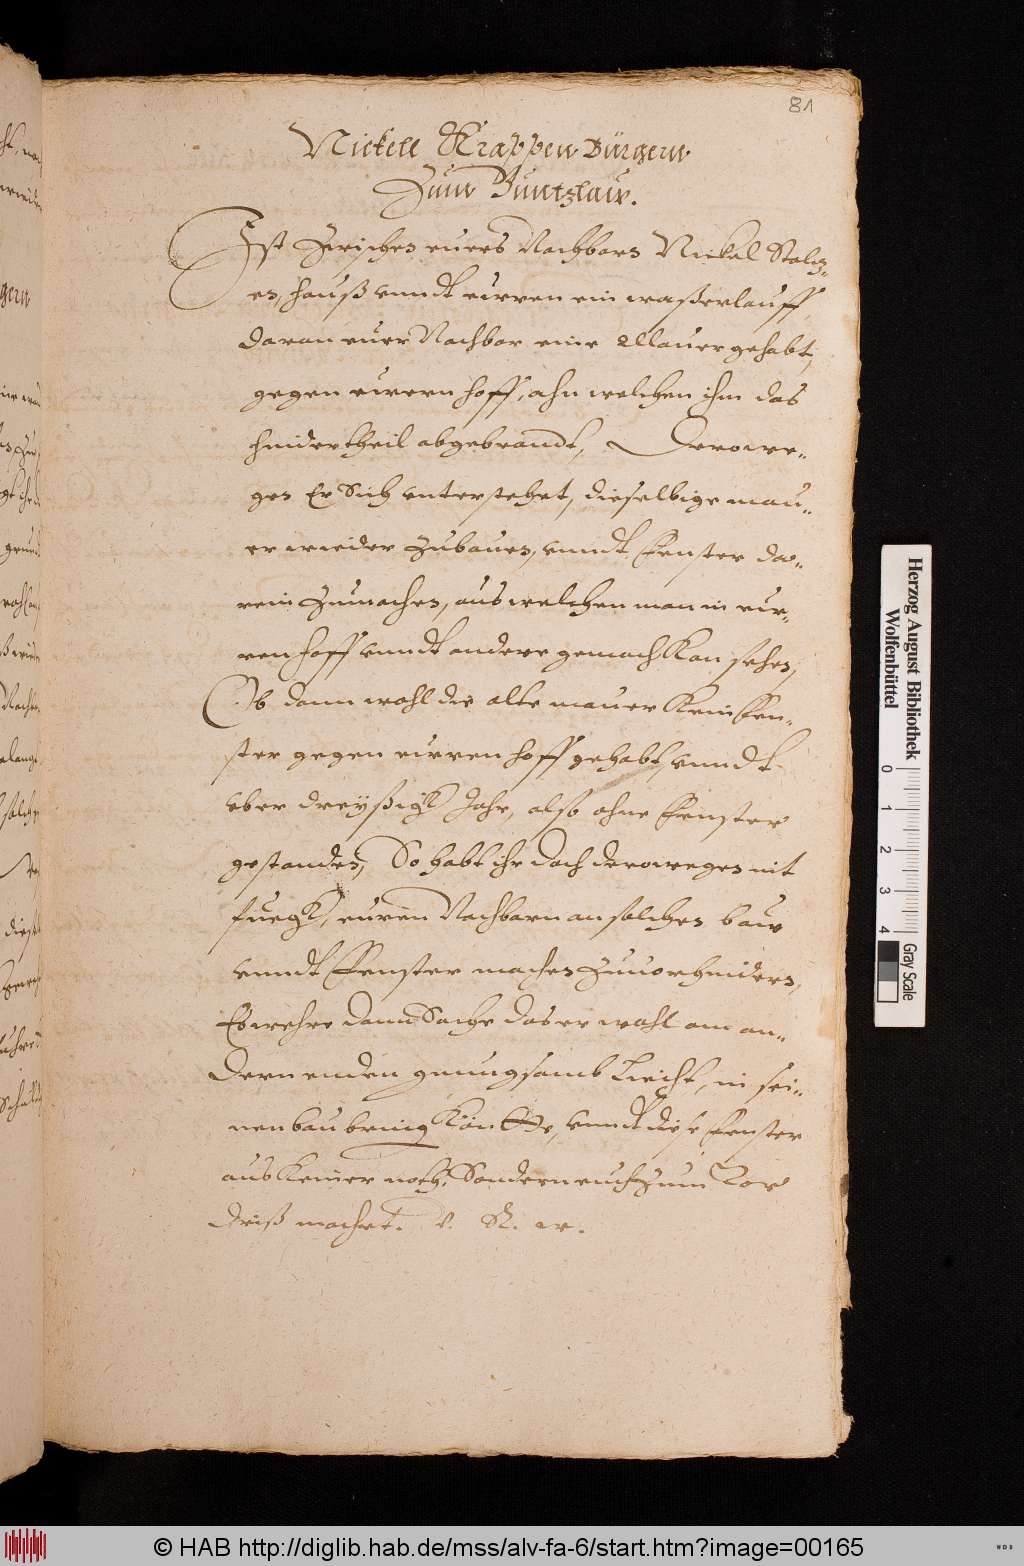 81
Nickell Krappen Bürgern
Zum Buntzlaw.
Ist Zwischen euers Nachbars Nickel Stoltz-
en, hauß vnndt eurren ein waßerlauff,
daran euer Nachbar eine Mauer gehabt,
gegen ewern hoff, ahn welchen ihm das
hindertheil abgebrandt, Derowe-
gen Er Sich vnterstehet, dieselbige mau-
er wieder Zubauen, vnndt Fenster da-
rein Zumachen, aus welchen man in eur-
ren hoff vnndt andere gemach kan sehen,
Ob dann wohl die alte mauer kein Fen-
ster gegen eurren hoff gehabt, vnndt
vber dreyßigk Jahr, also ohne Fenster
gestanden, So habt ihr doch deroweges nit
fuegk, euren Nachbarn an solchen bauw
vnndt Fenster machen Zuuorhindern,
Es wehre dann Sache das er wohl am an-
dern enden gnungsamb Liecht, in sei-
nen bau bring köntte, vnndt diese Fenster
aus keiner noth, Sondern euch Zum Vor
driß machet. V. R. w.
Herzog August Bibliothek
Wolfenbüttel
0 1 2 3 4
Gray Scale
© HAB http://diglib.hab.de/mss/alv-fa-6/start.htm?image=00165
WDB